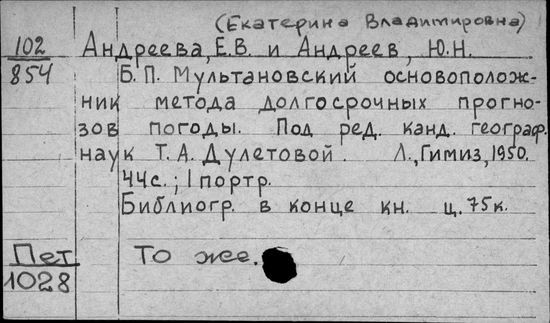 (Екатерина Владимировна)
102 Андреева, Е.В. и Андреев, Ю.Н.
854 Б.П. Мультановский основополож-
ник метода долгосрочных прогно-
зов погоды. Под ред. канд. географ.
наук Т.А. Дулетовой. Л., Гимиз, 1950.
44с.; 1 портр.
Библиогр. в конце кн. ц. 75 к.
Пет То же.
1028